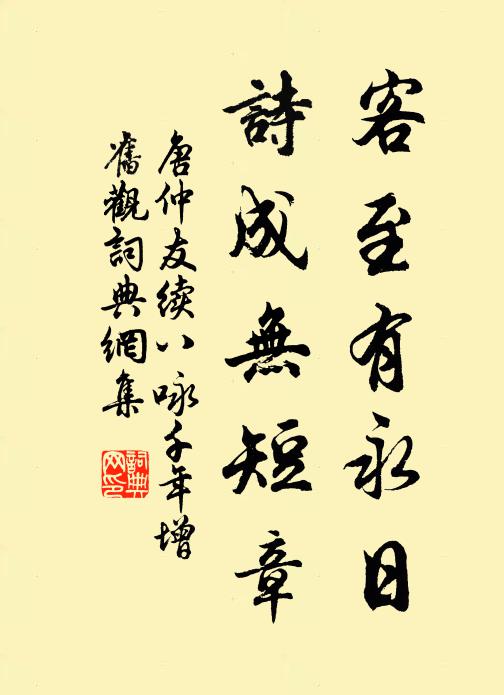 客至有永日
詩成無短章
唐仲友續八咏千年增
舊觀詞典網集
詞典网印